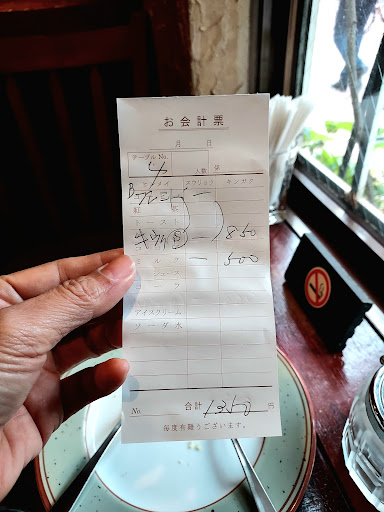 お会計票
月 日
テーブル No. 4 人数 係
ヒンメイ スウリョウ キンガク
B ブレンド 一
紅 茶
トースト
850
ミルク 一 500
ジュース
アイスクリーム
ソーダ水
No. 合計 1350 円
毎度有難うございます。